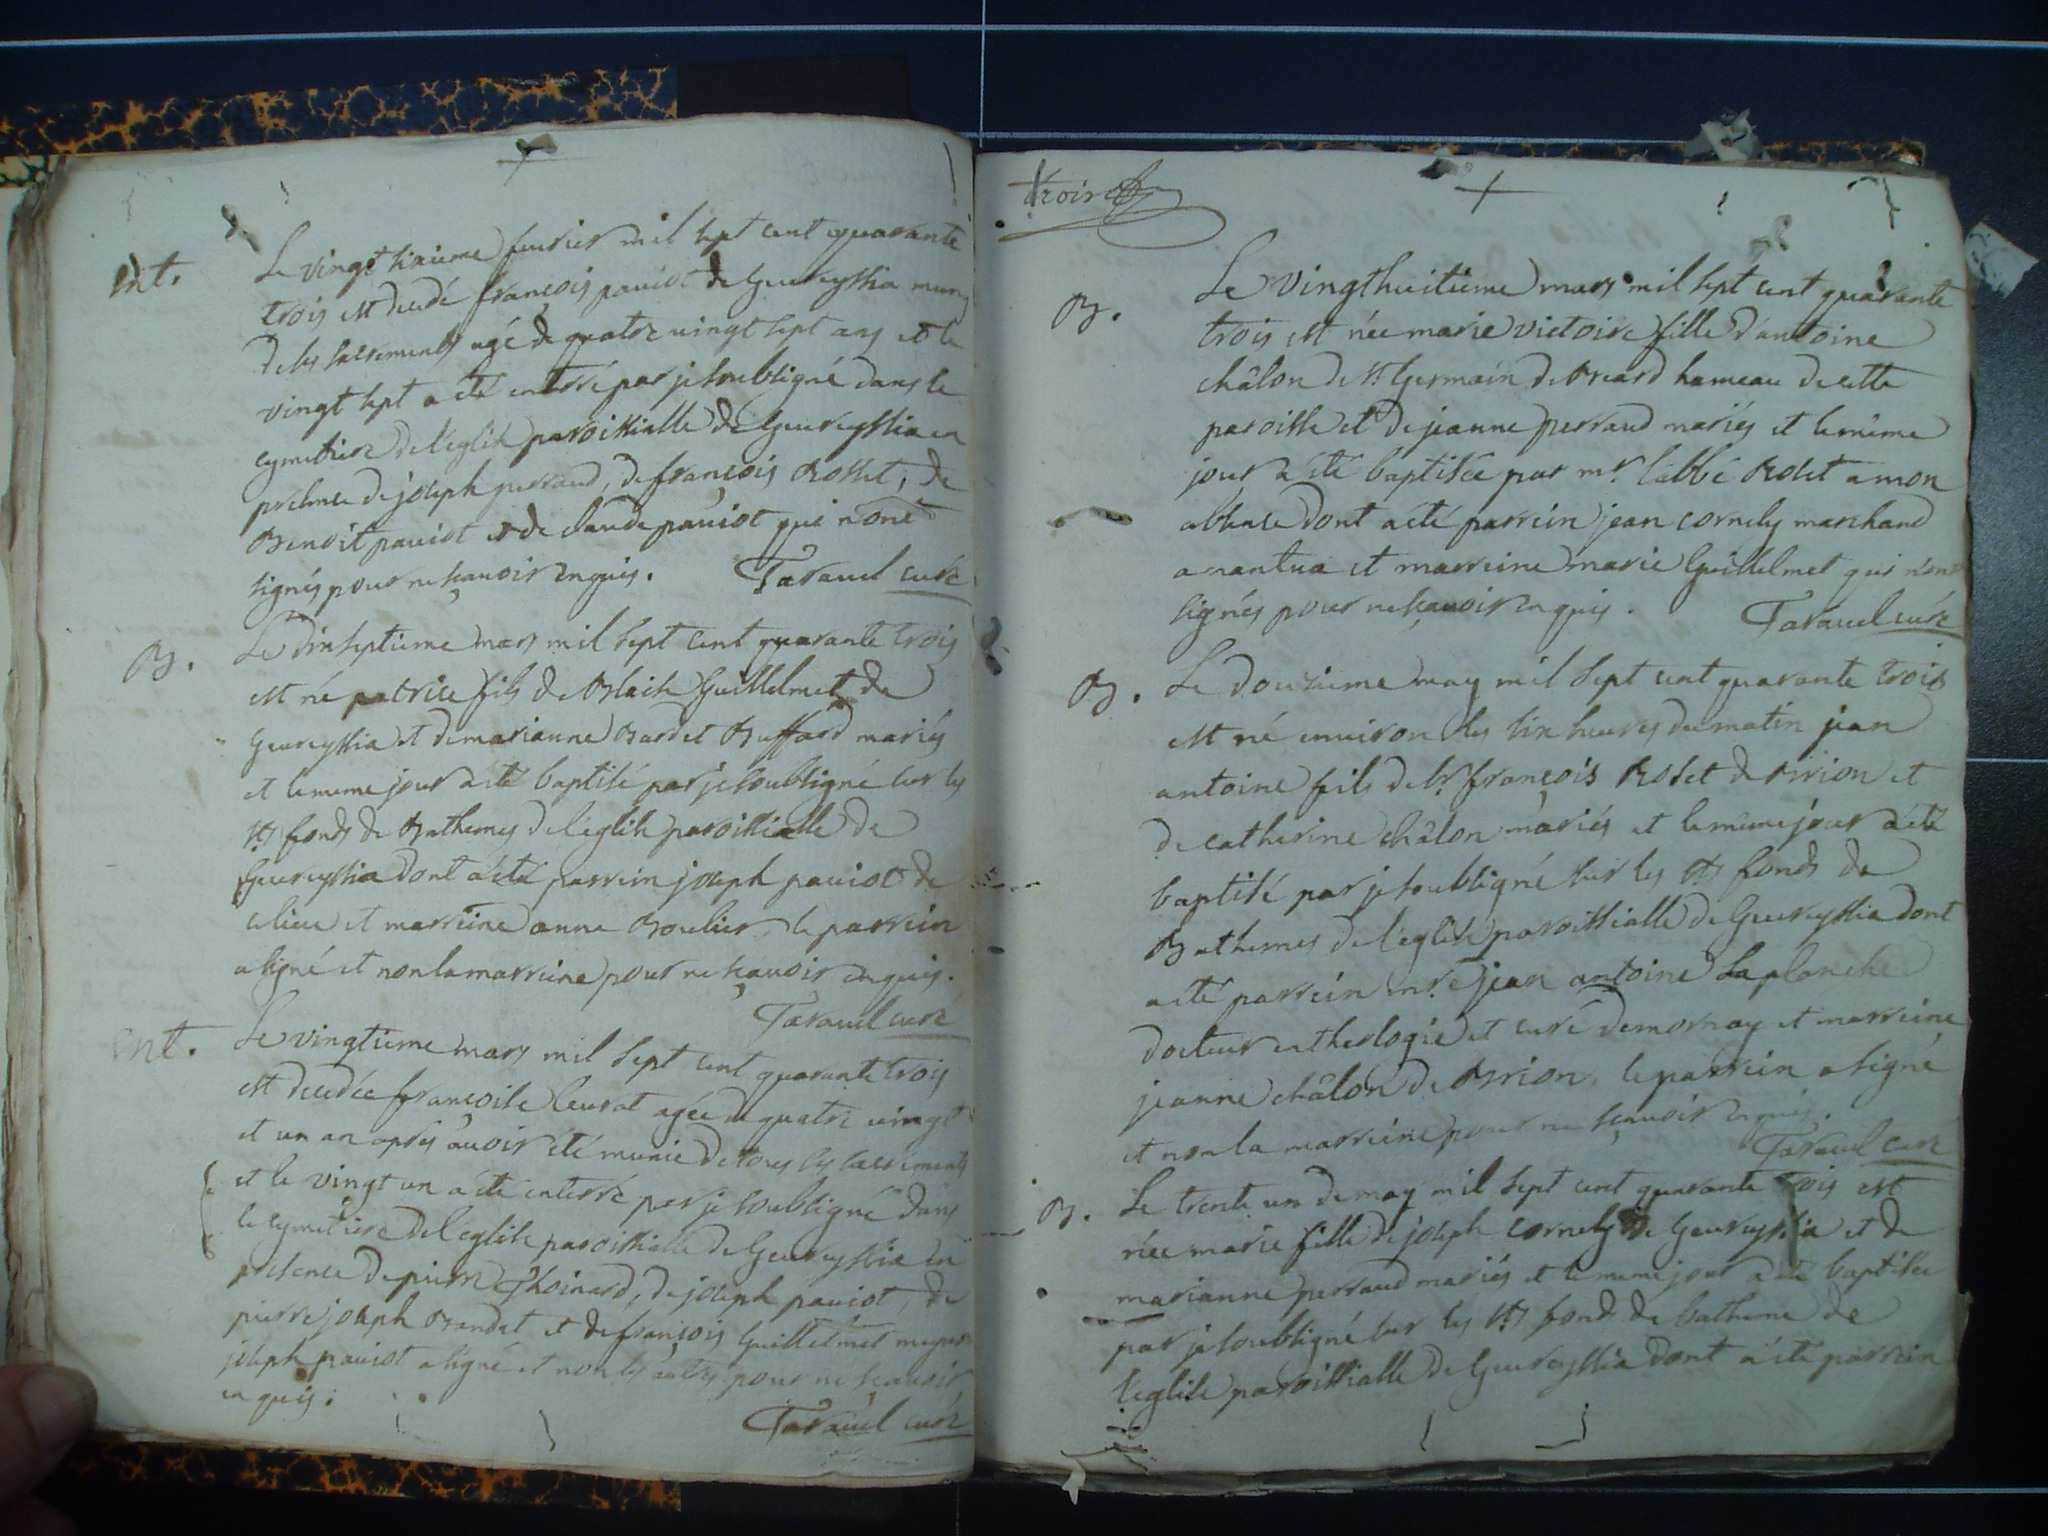 Ent.
Le vingt sixième feurier mil sept cent quarante
trois est decedé françois pauiot de Geureyssia muny
de les sacrements agé de quatre vingt sept ans et le
vingt sept a été enterré par je soubsigné dans le
cymetiere de l'eglise paroissialle de Geureyssia en
presence de joseph perraud, de françois Rosset, de
Benoit pauiot et de claude pauiot qui n'ont
signés pour ne sçauoir enquis. Tarauel curé
B.
Le dixseptieme mars mil sept cent quarante trois
est né patrice fils de Blaise Guillelmet de
Geureyssia et de marianne Bardet Buffard mariés
et le meme jour a été baptisé par je soubsigné sur les
sts fonds de Bathemes de l'eglise paroissialle de
Geureyssia dont a été parrein joseph pauiot de
ce lieu et marreine anne Boulier, le parrein
a signé et non la marreine pour ne sçauoir enquis.
Tarauel curé
Ent.
Le vingtieme mars mil sept cent quarante trois
est decedée francoise leurat agée de quatre vingt
et un an apres auoir été munie de tous les sacrements
et le vingt un a été enterré par je soubsigné dans
le cymetiere de l'eglise paroissialle de Geureyssia en
presence de pierre Thoinard, de joseph pauiot, de
pierre joseph Bandet et de françois Guillelmet
joseph pauiot a signé et non les autres pour ne sçauoir
enquis. Tarauel curé
trois
B.
Le vingthuitieme mars mil sept cent quarante
trois est née marie victoire fille d'antoine
châlon de st Germain de Beard hameau de cette
paroisse et de jeanne perraud mariés et le même
jour a été baptisée par mr. l'abbé Rodet a mon
absence dont a été parrein jean cornely marchand
a nantua et marreine marie Guillelmet qui n'ont
signés pour ne sçauoir enquis. Tarauel curé
B.
Le douzieme may mil sept cent quarante trois
est né enuiron les six heures du matin jean
antoine fils de sr. françois Rodet de Brion et
de catherine châlon mariés et le même jour a été
baptisé par je soubsigné sur les sts fonds de
Bathemes de l'eglise paroissialle de Geureyssia dont
a été parrein mre jean antoine Laplanche
docteur en theologie et curé de mornay et marreine
jeanne châlon de Brion, le parrein a signé
et non la marreine pour ne sçauoir enquis.
Tarauel curé
B.
Le trente un de may mil sept cent quarante trois est
née marie fille de joseph cornely de Geureyssia et de
marianne perraud mariés et le meme jour a été baptisée
par je soubsigné sur les sts fond de batheme de
l'eglise paroissialle de Geureyssia dont a été parrein